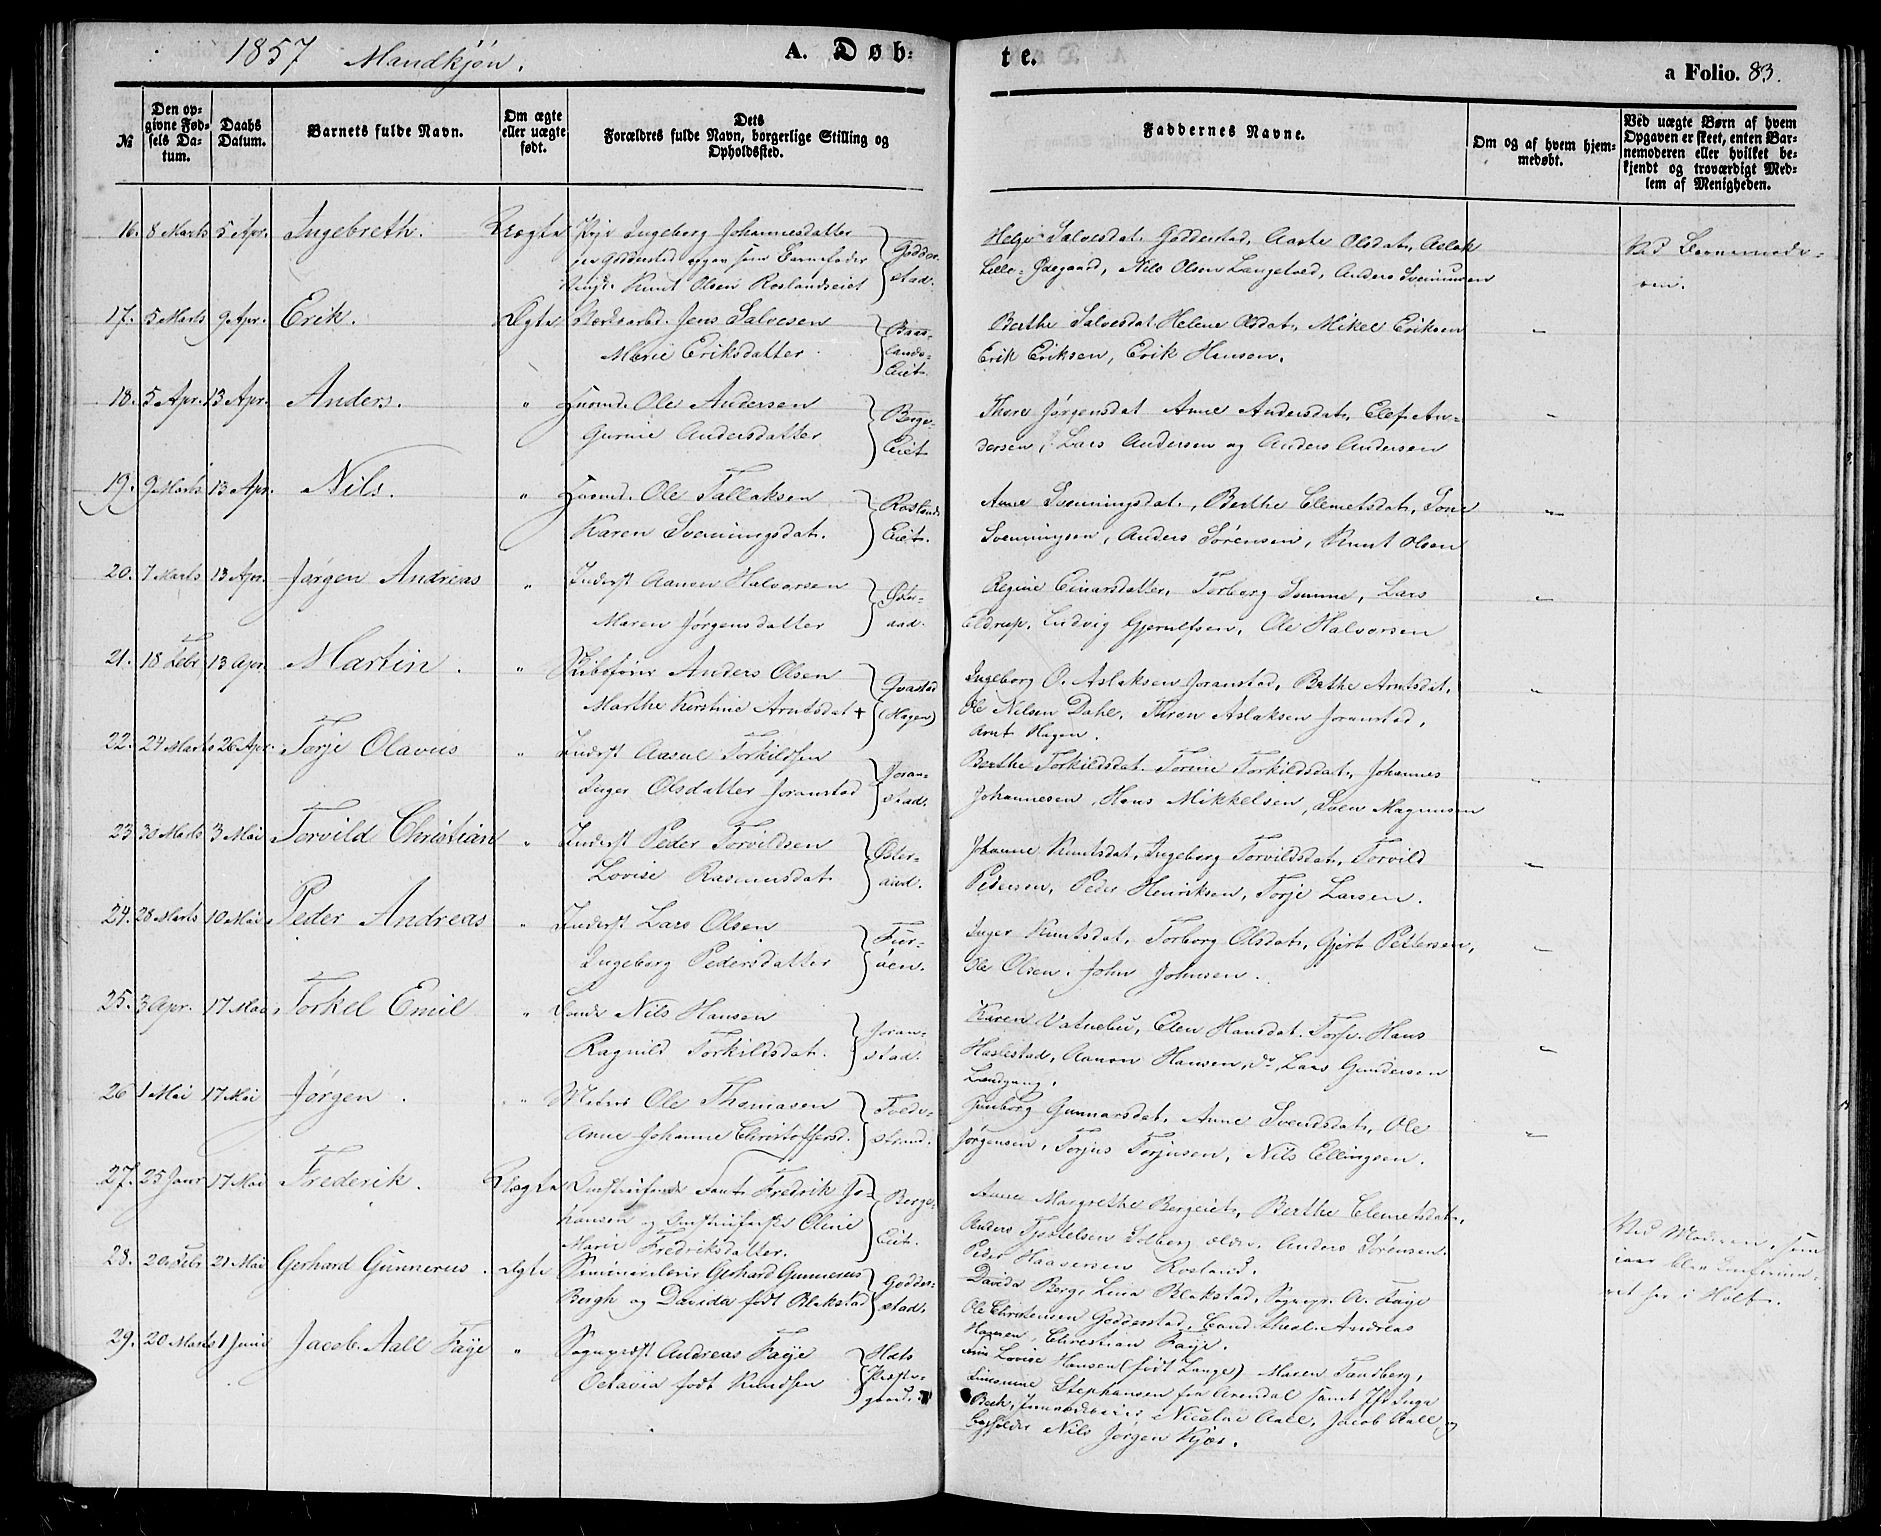 1857 Mandkjøn.
A. Døb:
te.
a Folio. 83.
№
Den opgivne Fødsels Datum.
Daabs Datum.
Barnets fulde Navn.
Om ægte eller uægte født.
Dets Forældres fulde Navn, borgerlige Stilling og Opholdssted.
Faddernes Navne.
Om og af hvem hjemmedøbt.
Ved uægte Børn af hvem Opgaven er skeet, enten Barnemoderen eller hvilket bekjendt og troværdigt Medlem af Menigheden.
16. 8 Marts 5 Apr. Ingebreth. Uægte Pige Ingeborg Johannesdatter Godderstad.
Knut Olsen Roslandseiet
Helge Salvesdat. Godderstad, Aaste Olsdat, Aslak
Lille-Ødegaard, Nils Olsen Langetved, Anders Svennungsen
Ved Barnemoderen.
17. 5 Marts 9 Apr. Erik. Ægte Jens Salvesen
Marie Eriksdatter.
Berthe Salvesdat. Helene Olsdat, Mikel Eriksen
Erik Eriksen, Erik Hansen.
18. 5 Apr. 13 Apr. Anders. " Huusmd. Ole Andersen Berge-
Gurine Andersdatter Eiet
Thore Jørgensdat Anne Andersdat, Elef An-
dersen, Lars Andersen og Anders Andersen
19. 9 Marts 13 Apr. Nils. " Huusmd. Ole Tallaksen Roslands
Karen Svenningsdat. Eiet.
Anne Svenningsdat., Berthe Clemetsdat, Tone
Svenningsen, Anders Sørensen, Knut Olsen
20. 7 Marts 13 Apr. Jørgen Andreas " Inderst Aanon Halvorsen Øster-
Maren Jørgensdatter aad.
Regine Einarsdatter, Torborg Somme, Lars
Eldrup, Ludvig Gjerulfsen, Ole Halvorsen
21. 18 Febr 13 Apr. Martin. " Skibsfører Anders Olsen Qvastad
Marthe Kirstine Arntsdat + (Hagen)
Ingeborg O. Aslaksen Joranstad, Berthe Arntsdat,
Ole Nilsen Dahl, Aslaksen Joranstad,
Arnt Hagen.
22. 24 Marts 26 Apr. Terje Olavus " Inderst Aasul Torkildsen Joran-
Inger Olsdatter Joranstad stad.
Berthe Torkildsdat. Torine Torkildsdat, Johannes
Johannesen, Hans Mikkelsen, Sven Magnussen
23 30 Marts 3 Mai Torvild Christian " Inderst Peder Torvildsen Øster-
Lovise Rasmusdat. aad.
Johanne Knutsdat, Ingeborg Torvildsdat, Torvild
Pedersen, Peder Henriksen, Terje Larsen.
24. 28 Marts 10 Mai Peder Andreas " Inderst Lars Olsen Fur-
Ingeborg Pedersdatter øen.
Inger Knutsdat, Torborg Olsdat, Gjert Pettersen,
Ole Olsen. John Johnsen.
25. 3 Apr. 17 Mai Torkel Emil " Nils Hansen Joran-
Ragnild Torkildsdat. stad.
Karen Vatnebu, Elen Hansdat. Hans
Haslestad, Aanon Hansen, Lars Gundersen
Landgang.
26 1 Mai 17 Mai Jørgen. " Ole Thomasen Tvede-
Anne Johanne Christoffersd. strand.
Gunborg Gunnarsdat, Anne Svendsdat, Ole
Jørgensen, Torjus Torjusen, Nils Ellingsen.
27. 25 Janr 17 Mai Frederik. Uægte Omstreifende Fant Fredrik Jo- Berge-
hansen og Omstreiferske Oline Eiet.
Marie Fredriksdatter.
Anne Margrethe Bergeiet, Berthe Clemetsdat,
Anders Tjostelsen Solberg ældre, Anders Sørensen.
Peder Haagensen Rosland.
Ved Moderen, som
iaar blev Confirme-
ret her i Holt.
28. 20 Febr 21 Mai Gerhard Gunnerus. Ægte Seminarielærer Gerhard Gunnerus Godder-
Bergh og Davida født Blakstad stad.
Davida Berg, Lina Blakstad, Sognepr. A. Faye
Ole Christensen Godderstad, Cand. theol. Andreas
Hansen, Christian Faye.
29. 20 Marts 1 Juni Jacob Aall Faye " Sognepræst Andreas Faye Holts
Octavia født Knudsen Præste-
gaard.
Lovise Hansen (født Lange) Maren Tandberg,
Stephansen fra Arendal samt Inga
Beck, Nicolai Aall, Jacob Aall og
Nils Jørgen Kjær.